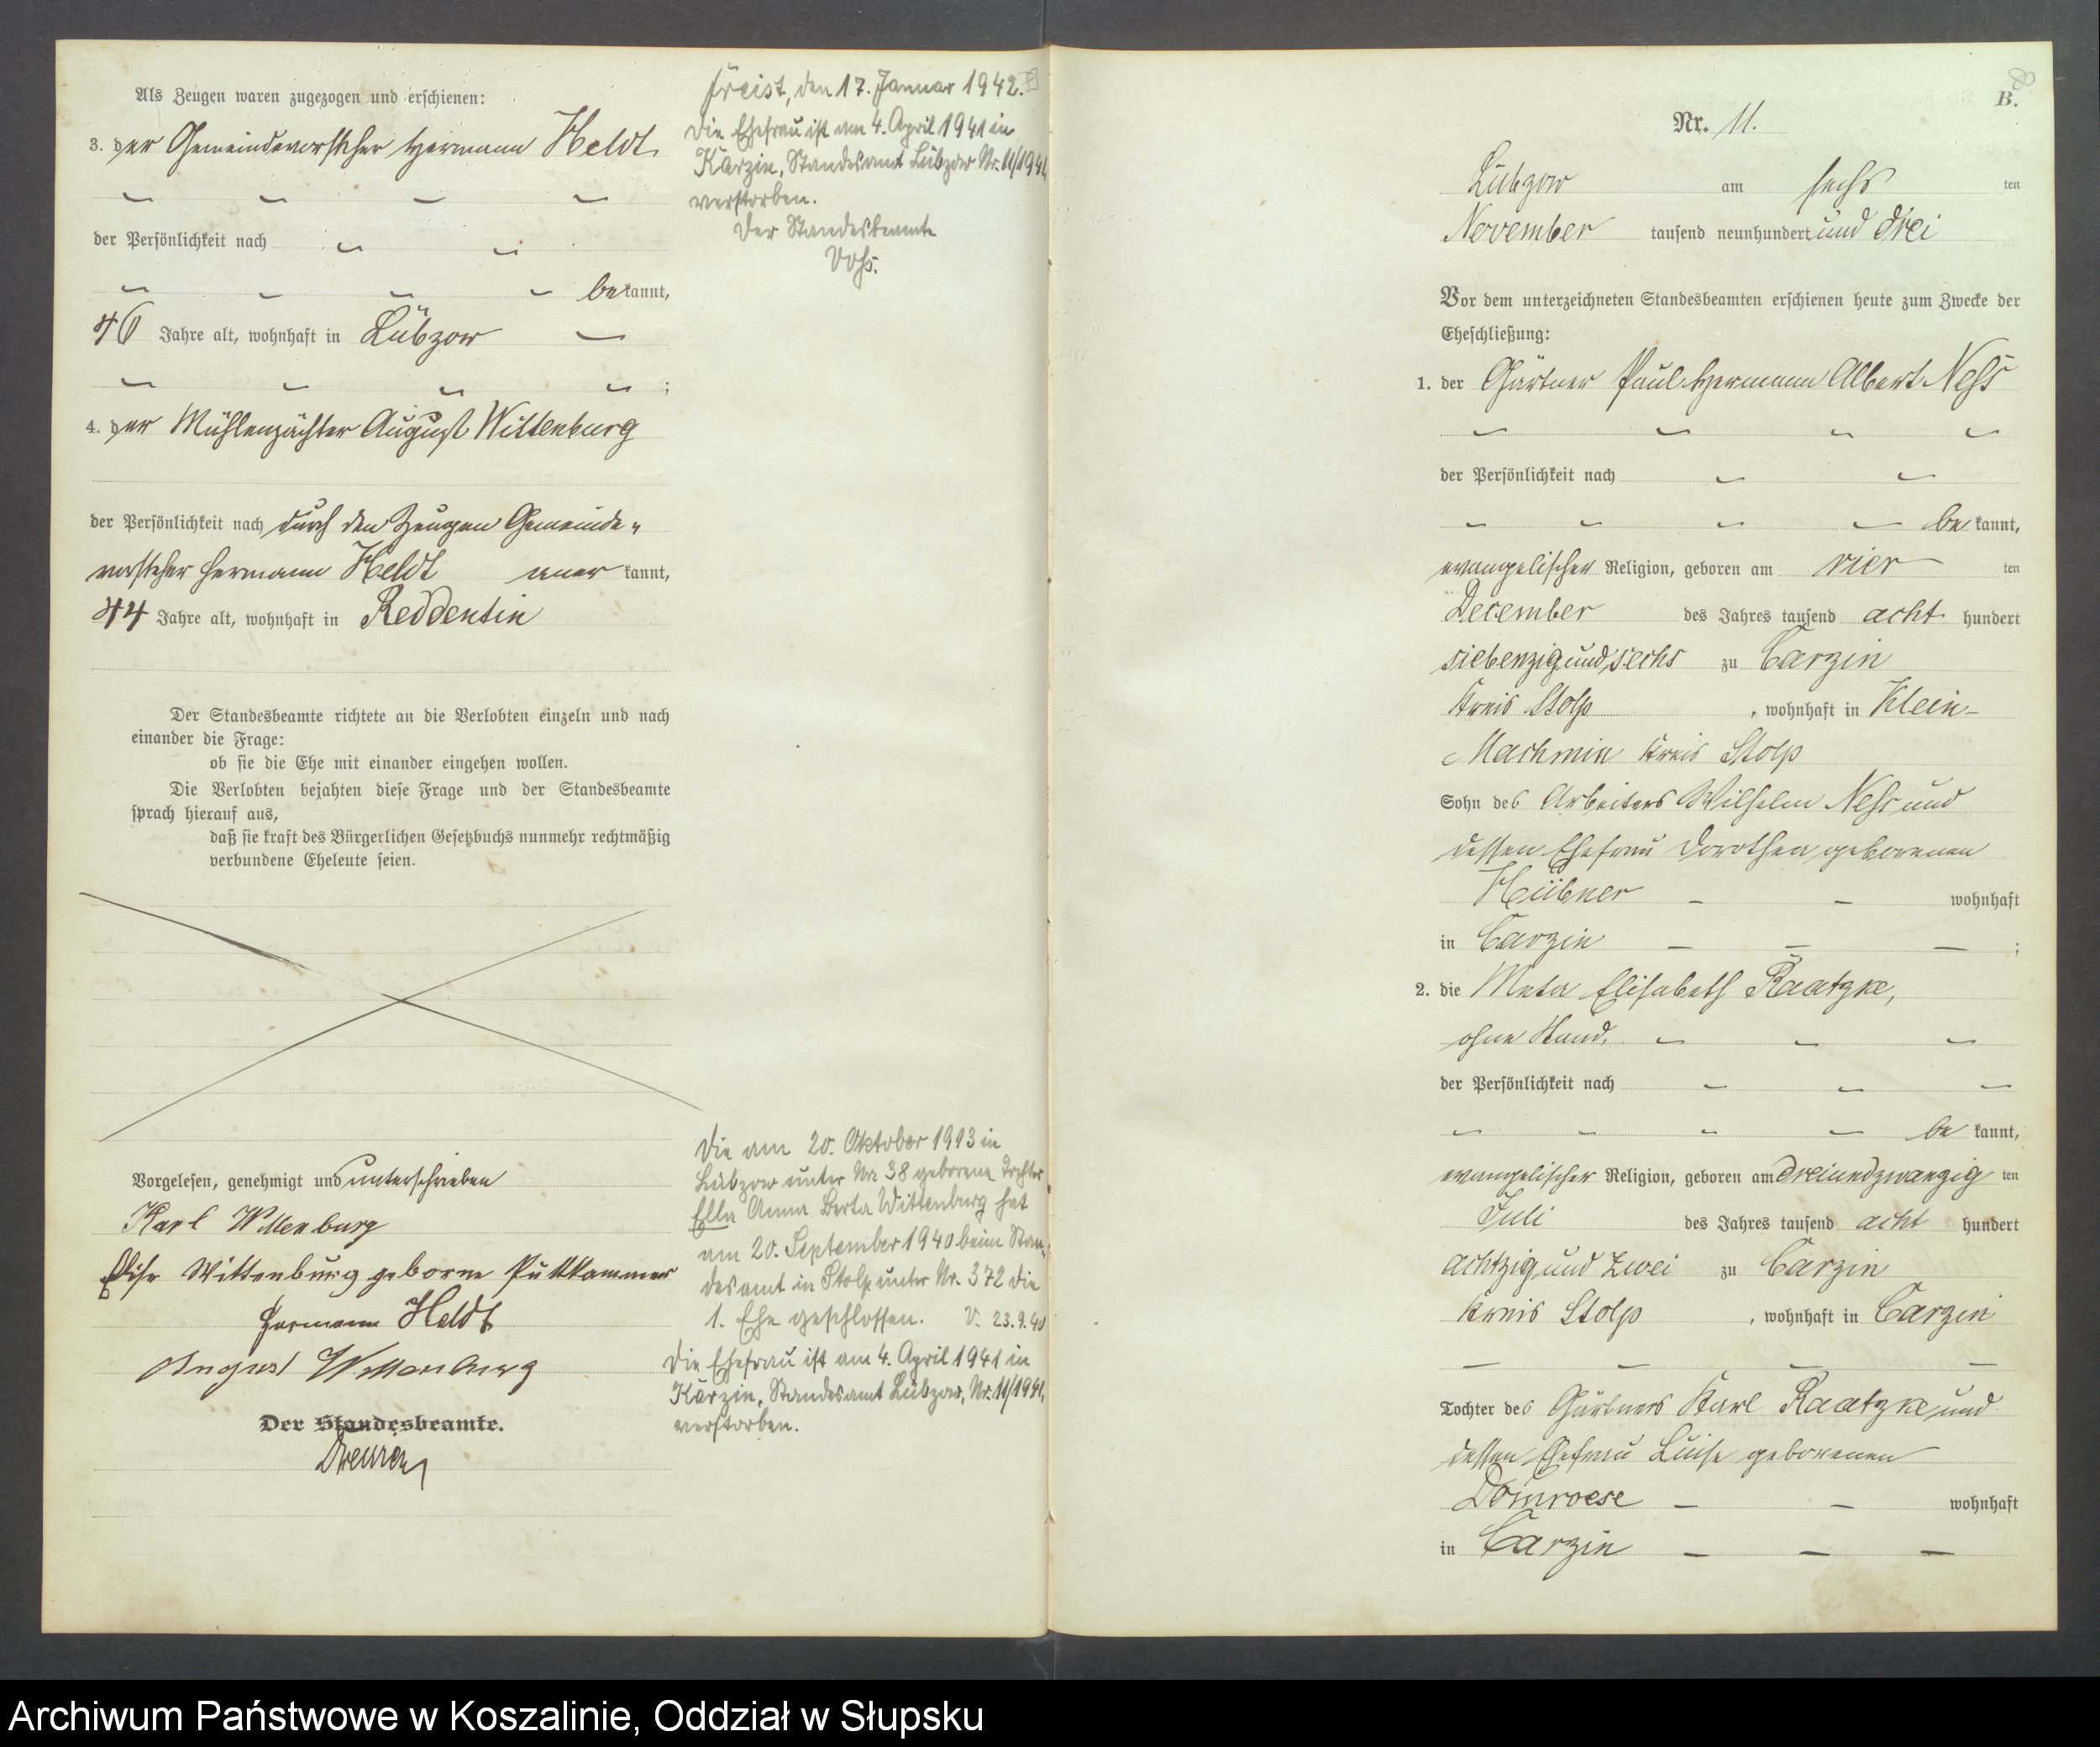 Als Zeugen waren zugezogen und erschienen:
3. der Gemeindevorsteher Hermann Heldt
der Persönlichkeit nach
bekannt,
46 Jahre alt, wohnhaft in Lübzow
;
4. der Mühlenpächter August Wittenburg
der Persönlichkeit nach durch den Zeugen Gemeinde-
vorsteher Hermann Heldt anerkannt,
44 Jahre alt, wohnhaft in Reddentin
Der Standesbeamte richtete an die Verlobten einzeln und nach
einander die Frage:
ob sie die Ehe mit einander eingehen wollen.
Die Verlobten bejahten diese Frage und der Standesbeamte
sprach hierauf aus,
daß sie kraft des Bürgerlichen Gesetzbuchs nunmehr rechtmäßig
verbundene Eheleute seien.
Vorgelesen, genehmigt und unterschrieben
Karl Wittenburg
Elise Wittenburg geborne Puttkammer
Hermann Heldt
August Wittenburg
Der Standesbeamte.
Freist, den 17. Januar 1942.
Die Ehefrau ist am 4. April 1941 in
Karzin, Standesamt Lübzow Nr. 11/1941,
verstorben.
Der Standesbeamte
Voß.
Die am 20. Oktober 1913 in
Lübzow unter Nr. 38 geborene Tochter
Ella Anna Berta Wittenburg hat
am 20. September 1940 beim Stan-
desamt in Stolp unter Nr. 372 die
1. Ehe geschlossen. V. 23.9.40
Die Ehefrau ist am 4. April 1941 in
Karzin, Standesamt Lübzow, Nr. 11/1941,
verstorben.
B.
Nr. 11.
Lübzow am sechs ten
November tausend neunhundert und drei
Vor dem unterzeichneten Standesbeamten erschienen heute zum Zwecke der
Eheschließung:
1. der Gärtner Paul Hermann Albert Neß
der Persönlichkeit nach
bekannt,
evangelischer Religion, geboren am vier ten
December des Jahres tausend acht hundert
siebenzig und sechs zu Carzin
Kreis Stolp, wohnhaft in Klein-
Machmin Kreis Stolp
Sohn des Arbeiters Wilhelm Neß und
dessen Ehefrau Dorothea geborenen
Hübner wohnhaft
in Carzin ;
2. die Meta Elisabeth Raatzke,
ohne Stand,
der Persönlichkeit nach
bekannt,
evangelischer Religion, geboren am dreiundzwanzig ten
Juli des Jahres tausend acht hundert
achtzig und zwei zu Carzin
Kreis Stolp, wohnhaft in Carzin
Tochter des Gärtners Karl Raatzke und
dessen Ehefrau Luise geborenen
Domroese wohnhaft
in Carzin
Archiwum Państwowe w Koszalinie, Oddział w Słupsku